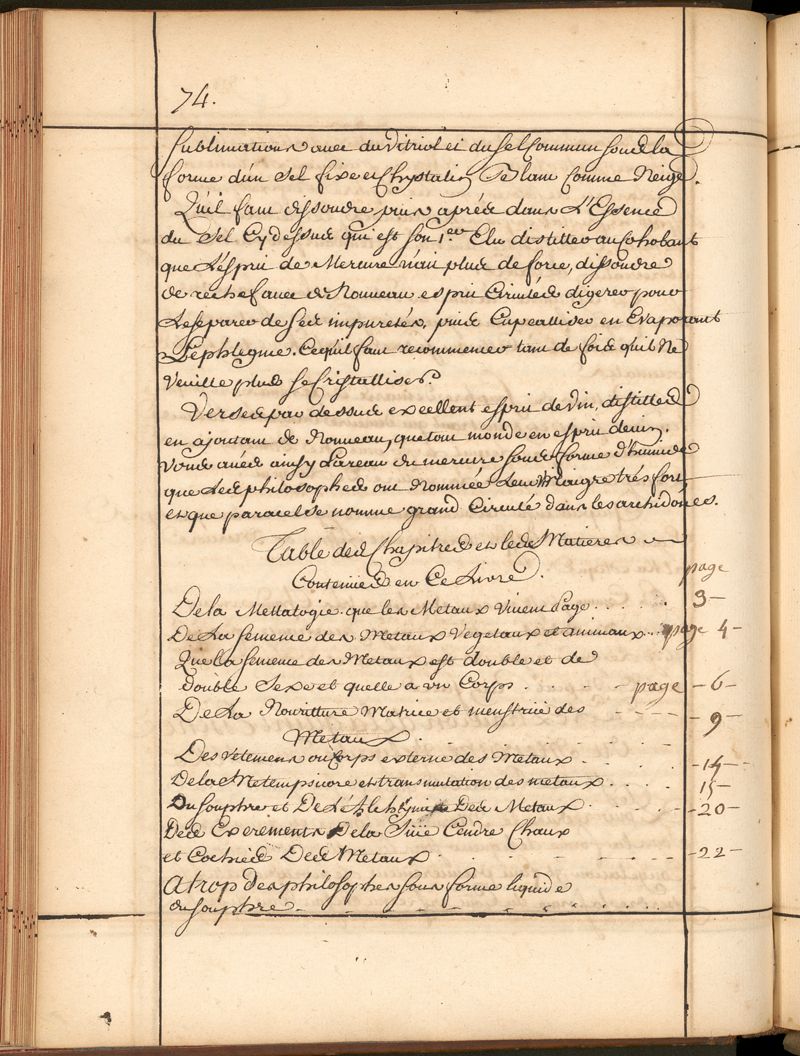 74.
Sublimations avec du Vitriol et du sel Commun sous la
forme d'un sel fixe et Chrystalin blanc comme Neige.
Qu'il faut dissoudre puis aprés dans L'Essence
du Sel Cy dessus qui est son 1.er distiller au cohobant
que L'esprit de Mercure n'ait plus de force, dissoudre
de rechef avec de Nouveau esprit Circulés digerer pour
Le separer de ses impuretés, puis en Evaporant
Lephlegme. Cequ'il faut recommencer tant de fois qu'il Ne
Veuille plus se Cristalliser.
Versés par dessus excellent esprit de vin, distillés
en ajoutant de Nouveau, que tout monde en esprit de vin.
Vous avés ainsy de mercure sous forme d'humide
que Les philosophes ont Nommée Leur Vinaigre trés fort
et que paracelse nomme grand Circulé dans les archidoxes.
Table des Chapitres et les Matieres
Contenües en Ce Livre.
page
De la Mettalogie que les Metaux Vivent page . . . . . 3
De La semence des Metaux Vegetaux et animaux . . page 4
Que la semence des Metaux est double et de
double Sexe et quelle a un Corps . . . . page 6
De La Nouritture Matrice et menstrüe des
Metaux . . . . 9
Des Vetemens ou Corps externe des Metaux . . . . 14
De la Metempsicore et transmutation des metaux . . . . 15
Du souphre et De Des Metaux . . . . 20
Des Exerements De la Suïe Cendre Chaux
et Des Metaux . . . . 22
Atrop des philosophes sous forme liquide
du souphre . . . .